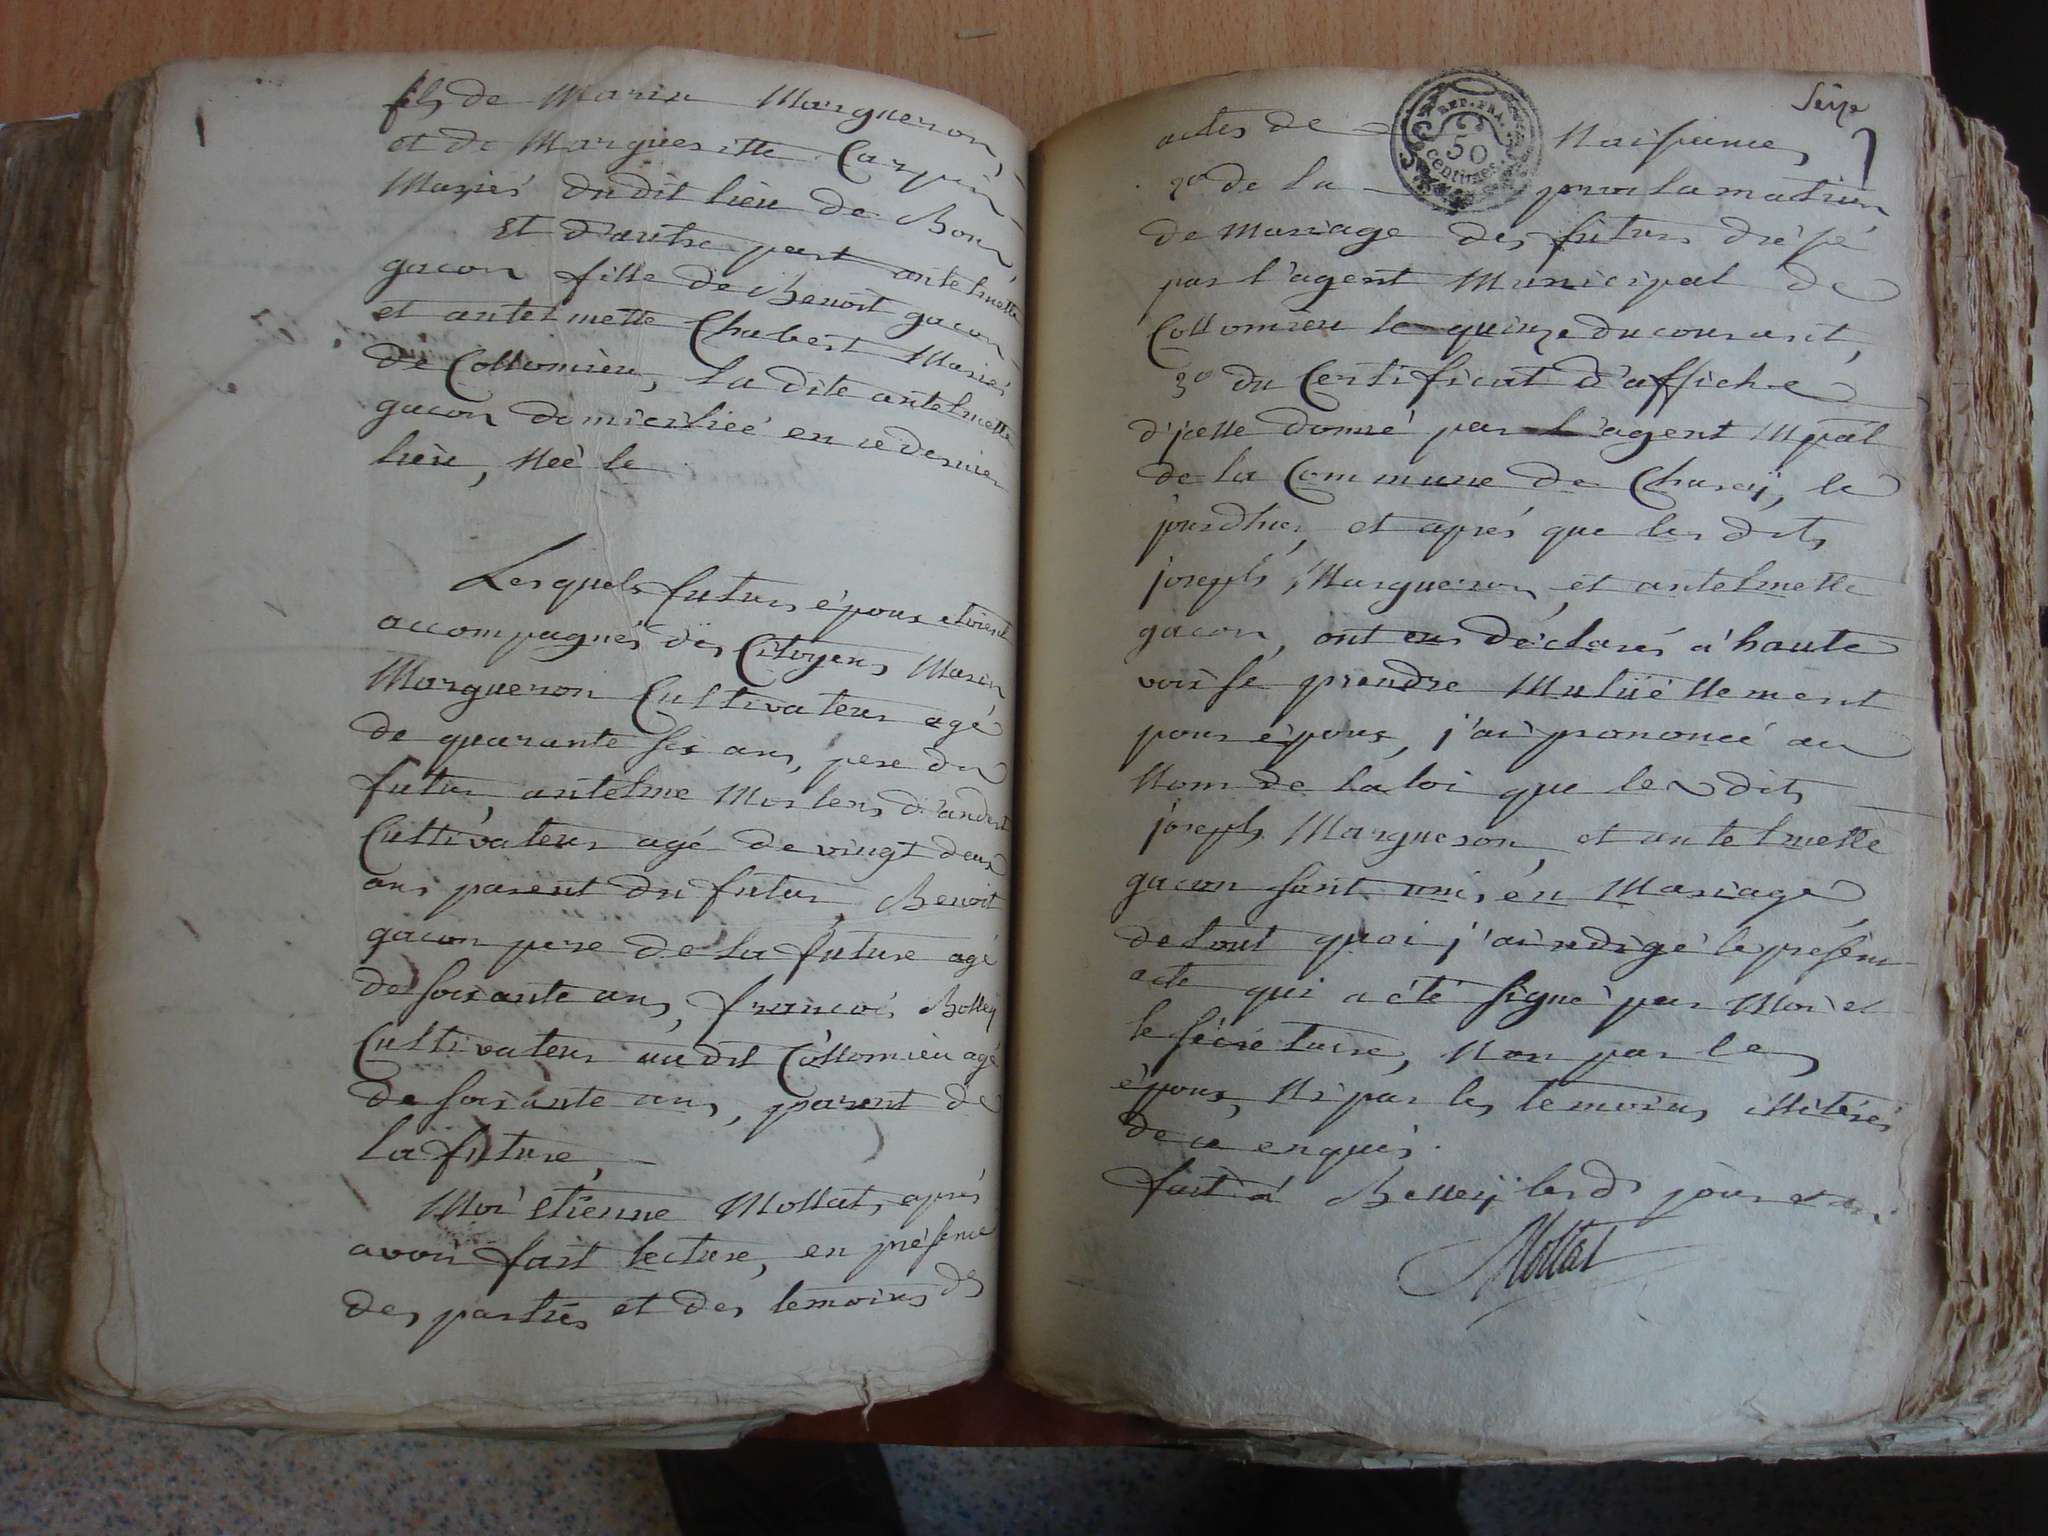 fils de Marin Margueron,
et de Margueritte Carpin
Mariés dudit lieu de Bon,
Et d'autre part antelmette
gacon fille de Benoit gacon
et antelmette Chabert Mariés
de Collomieu, la dite antelmette
gacon domicilieé en ce dernier
lieu, Neé le
Lesquels futurs époux etoient
accompagnés des Citoyens Marin
Margueron Cultivateur agé
de quarante six ans, pere du
futur, antelme Mortens d'andert
Cultivateur agé de vingt deux
ans parent du futur, Benoit
gacon pere de la future agé
de soixante ans, francois Bolley
Cultivateur audit Collomieu agé
de soixante ans, parent de
la future,
Moi étienne Mollat, aprés
avoir fait lecture, en présence
des parties et des temoins ds
Seize
REP. FRA.
50
centimes
actes de Naissance,
2º de la proclamation
de Mariage des futurs dréssé
par l'agent Municipal de
Collomieu le quinze du courant,
3º du Certificat d'affiche
d'jcelle donné par l'agent Mpal
de la Commune de Charey, le
jourdhui, et aprés que les dits
joseph Margueron, et antelmette
gacon, ont eus déclarés á haute
voix se prendre Mutüéllement
pour époux, j'ai prononcé au
Nom de la loi que les dits
joseph Margueron, et antelmette
gacon sont unis en Mariage
de tout quoi j'ai redigé le présent
acte qui a été signé par Moi et
le sécrétaire, Non par les
époux, Ni par les temoins illitérés
de ce enquis.
fait á Belley les ds jour et an.
Mollat